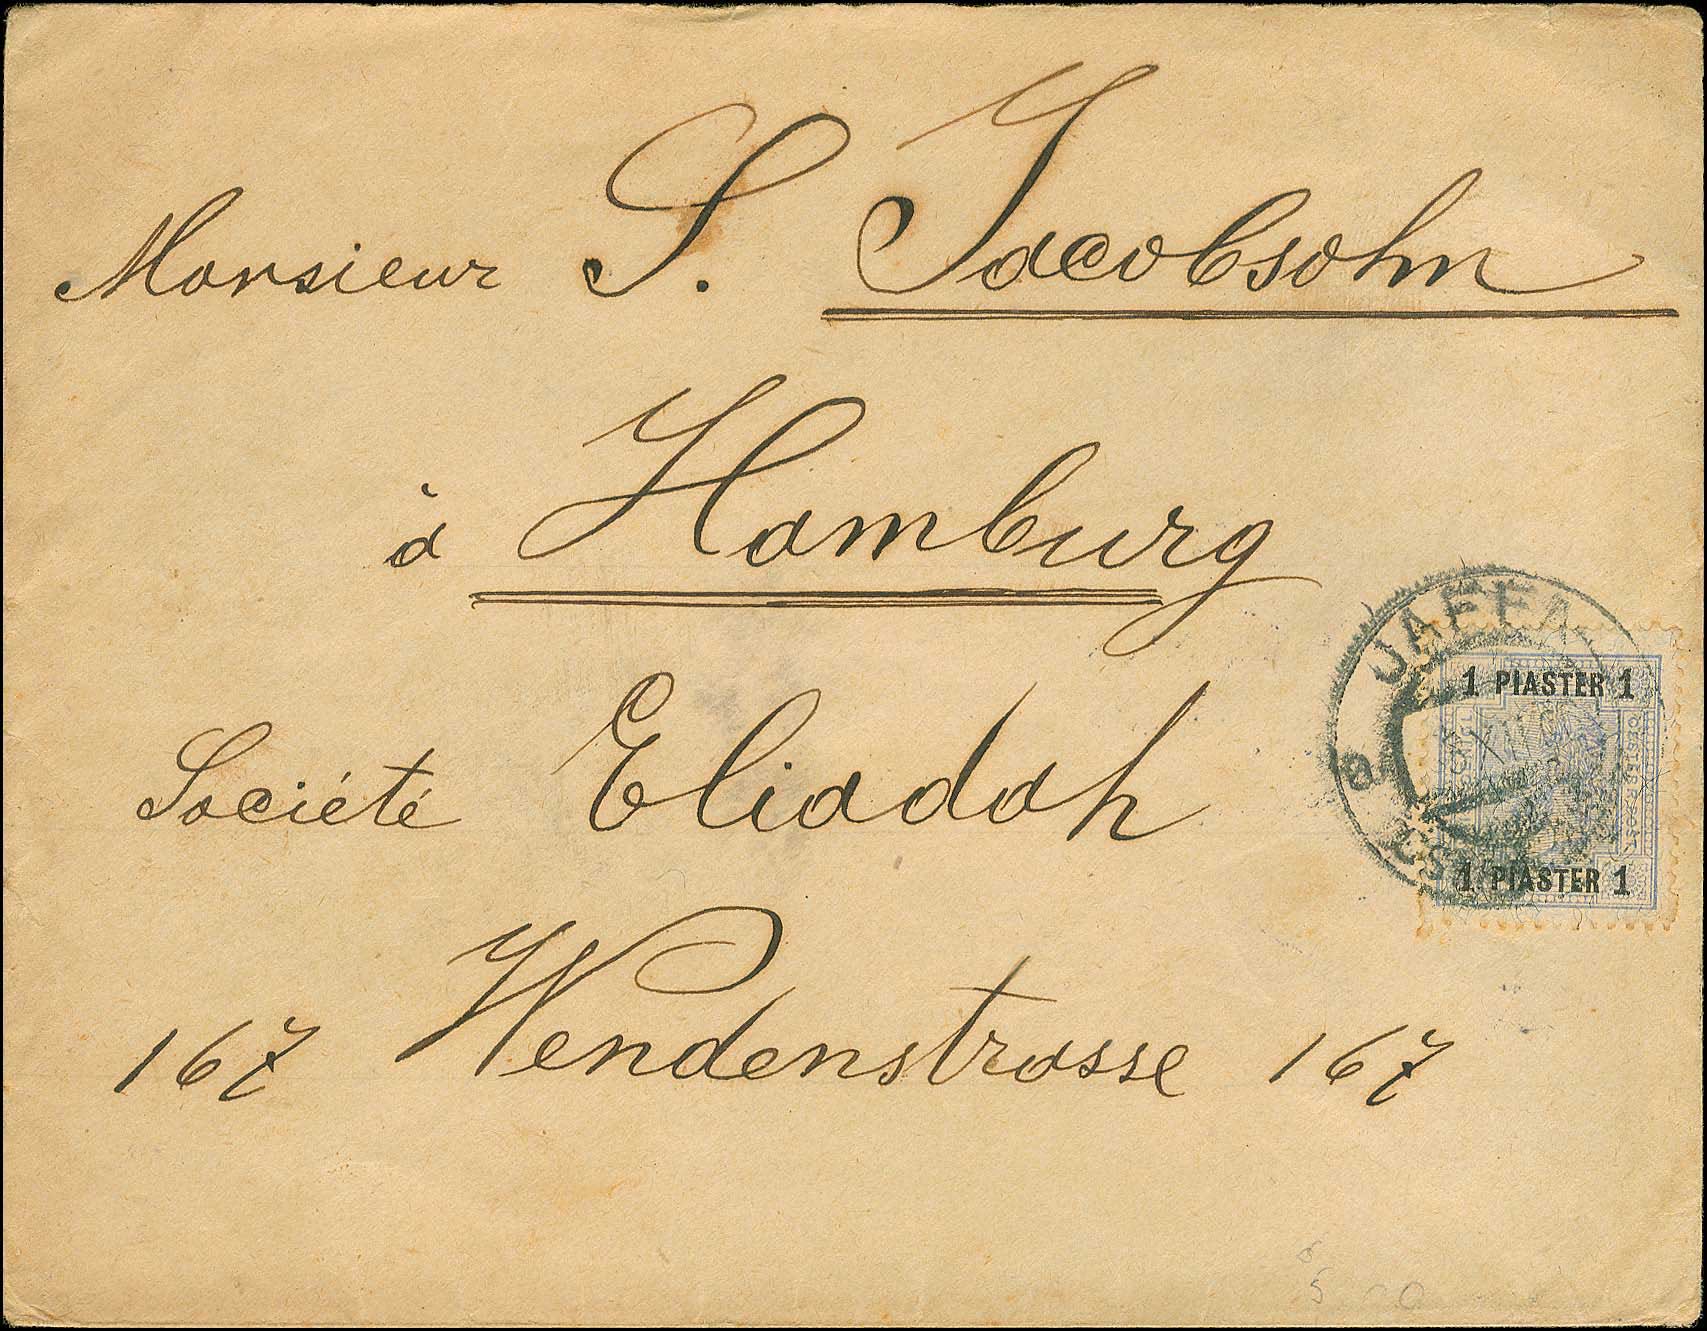 Monsieur S. Jacobsohn
à Hamburg
Société Eliadah
167 Wendenstrasse 167
JAFFA
1 PIASTER 1
1 PIASTER 1